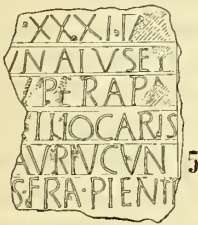 ·XXXII
INATVSET
PERAPA
ETHOCARIS
AVRIVCVN
S·FRA·PIENT
5